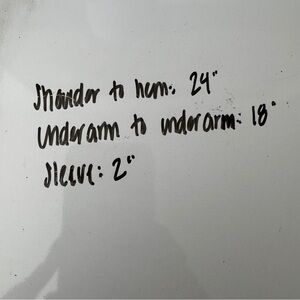 Shoulder to hem: 24"
Underarm to underarm: 18"
Sleeve: 2"